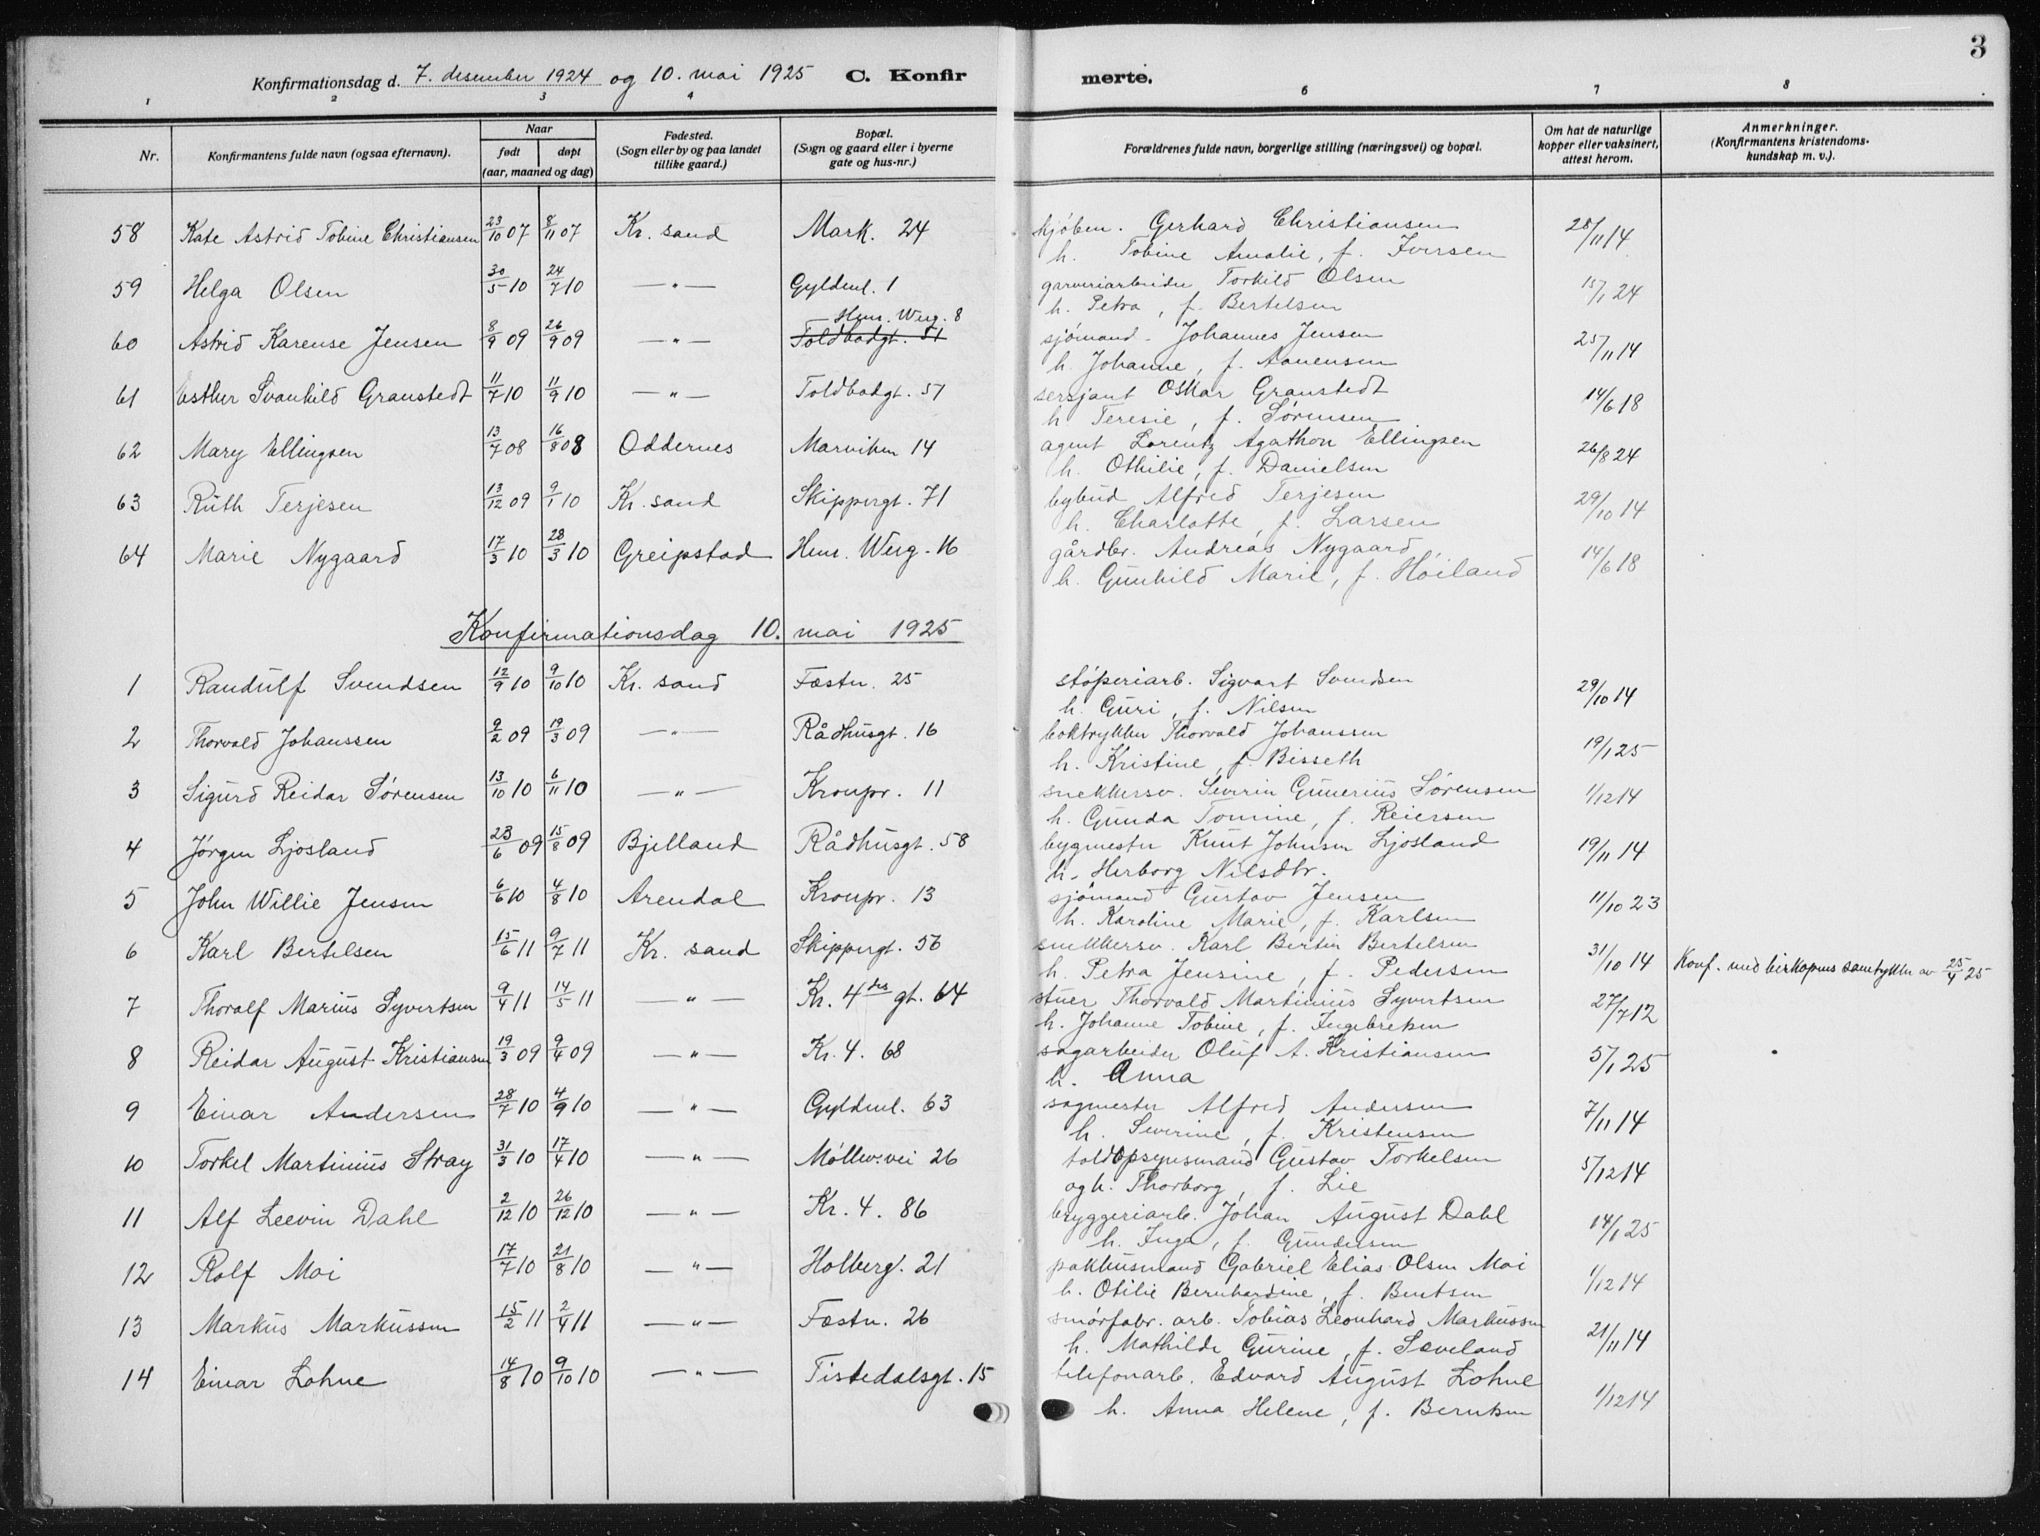 3
Konfirmationsdag d. 7. desember 1924 og 10. mai 1925 C. Konfirmerte.
1 2 3 4 6 7 8
Nr. Konfirmantens fulde navn (ogsaa efternavn). Naar født døpt (aar, maaned og dag) Fødested. (Sogn eller by og paa landet tillike gaard.) Bopæl. (Sogn og gaard eller i byerne gate og hus-nr.) Forældrenes fulde navn, borgerlige stilling (næringsvei) og bopæl. Om hat de naturlige kopper eller vaksinert, attest herom. Anmerkninger. (Konfirmantens kristendomskundskap m. v.).
58 Kate Astrid Tobine Christiansen 23/10 07 8/11 07 Kr. sand Mark. 24 kjøbm. Gerhard Christiansen 28/11 14
h. Tobine Amalie, f. Iversen
59 Helga Olsen 30/5 10 24/7 10 —"— Gyldenl. 1 garveriarbeider Torkild Olsen 15/1 24
h. Petra, f. Bertelsen
Henr. Werg. 8
60 Astrid Karense Jensen 8/9 09 26/9 09 —"— Toldbodgt. 51 sjømand. Johannes Jensen 25/11 14
h. Johanne, f. Aanensen
61 Esther Svanhild Granstedt 11/7 10 11/9 10 —"— Toldbodgt. 51 sersjant Oskar Granstedt 14/6 18
h. Teresie, f. Sørensen
62 Mary Ellingsen 13/7 08 16/8 08 Oddernes Marviken 14 agent Lorentz Agathon Ellingsen 26/8 24
h. Othilie, f. Danielsen
63 Ruth Terjesen 13/12 09 9/1 10 Kr. sand Skippergt. 71 bybud Alfred Terjesen 29/10 14
h. Charlotte, f. Larsen
64 Marie Nygaard 17/3 10 28/3 10 Greipstad Henr. Werg. 16 gårdbr. Andreas Nygaard, 14/6 18
h. Gunhild Marie, f. Høiland
Konfirmationsdag 10. mai 1925
1 Randulf Svendsen 12/9 10 9/10 10 Kr. sand Fæstn. 25 støperiarb. Sigvart Svendsen 29/10 14
h. Guri, f. Nilsen
2 Thorvald Johanssen 9/2 09 19/3 09 —"— Rådhusgt. 16 boktrykker Thorvald Johanssen 19/1 25
h. Kristine, f. Bisseth
3 Sigurd Reidar Sørensen 13/10 10 6/11 10 —"— Kronpr. 11 snekkersv. Severin Gunerius Sørensen 1/12 14
h. Gunda Tomine, f. Reiersen
4 Jørgen Ljosland 23/6 09 15/8 09 Bjelland Rådhusgt. 58 bygmester Knut Johnsen Ljosland 19/11 14
h. Herborg Nilsdtr.
5 John Willie Jensen 6/6 10 4/8 10 Arendal Kronpr. 13 sjømand Gustav Jensen 11/10 23
h. Karoline Marie, f. Karlsen
6 Karl Bertelsen 15/6 11 9/7 11 Kr. sand Skippergt. 56 snekkersv. Karl Bertin Bertelsen 31/10 14 Konf. med biskopens samtykke av 25/4 25
h. Petra Jensine, f. Pedersen
7 Thoralf Marius Syvertsen 9/4 11 14/5 11 —"— Kr. 4des gt. 64 stuer Thorvald Martinius Syvertsen 27/7 12
h. Johanne Tobine, f. Ingebretsen
8 Reidar August Kristiansen 19/3 09 9/4 09 —"— Kr. 4. 68 sagarbeider Oluf A. Kristiansen 5/1 25
h. Anna
9 Einar Andersen 28/7 10 4/9 10 —"— Gyldenl. 63 sagmester Alfred Andersen 7/11 14
h. Severine, f. Kristensen
10 Torkel Martinius Stray 31/3 10 17/4 10 —"— Møllev:vei 26 toldopsynsmand Gustav Torkelsen 5/12 14
og h. Thorborg, f. Lie
11 Alf Leevin Dahl 2/12 10 26/12 10 —"— Kr. 4. 86 bryggeriarb. Johan August Dahl 14/1 25
h. Inga, f. Gundersen
12 Rolf Moi 17/7 10 21/8 10 —"— Holbergt. 21 pakhusmand Gabriel Elias Olsen Moi 1/12 14
h. Otilie Bernhardine, f. Bentsen
13 Markus Markussen 15/2 11 2/4 11 —"— Fæstn. 26 smørfabr. arb. Tobias Leonhard Markussen 21/11 14
h. Mathilde Gurine, f. Seveland
14 Einar Lohne 14/8 10 9/10 10 —"— Tistedalsgt. 15 telefonarb. Edvard August Lohne 1/12 14
h. Anna Helene, f. Berntsen